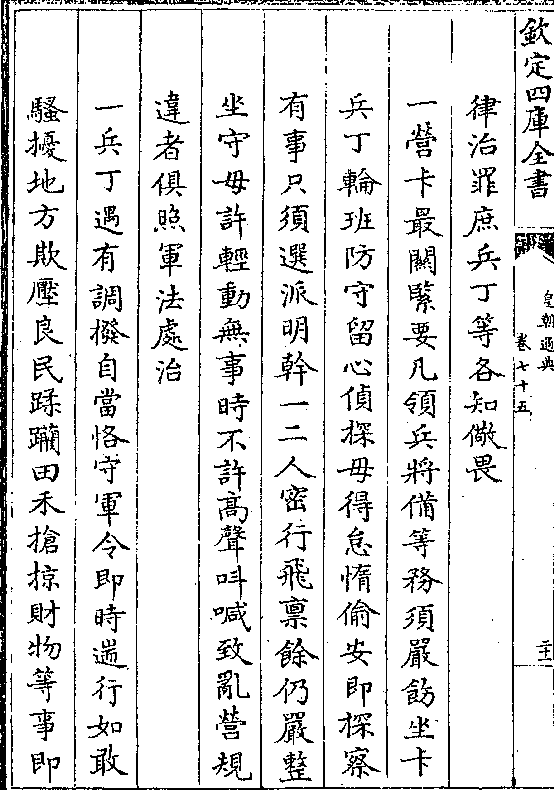 欽定四庫全書
皇朝通典
卷七十五
二十一
律治罪庶兵丁等各知儆畏
一營卡最關緊要凡領兵將備等務須嚴飭坐卡
兵丁輪班防守留心偵探毋得怠惰偷安即探察
有事只須選派明幹一二人密行飛禀餘仍嚴整
坐守毋許輕動無事時不許高聲呌喊致亂營規
違者俱照軍法處治
一兵丁遇有調撥自當恪守軍令即時遄行如敢
騷擾地方欺壓良民蹂躪田禾搶掠財物等事即